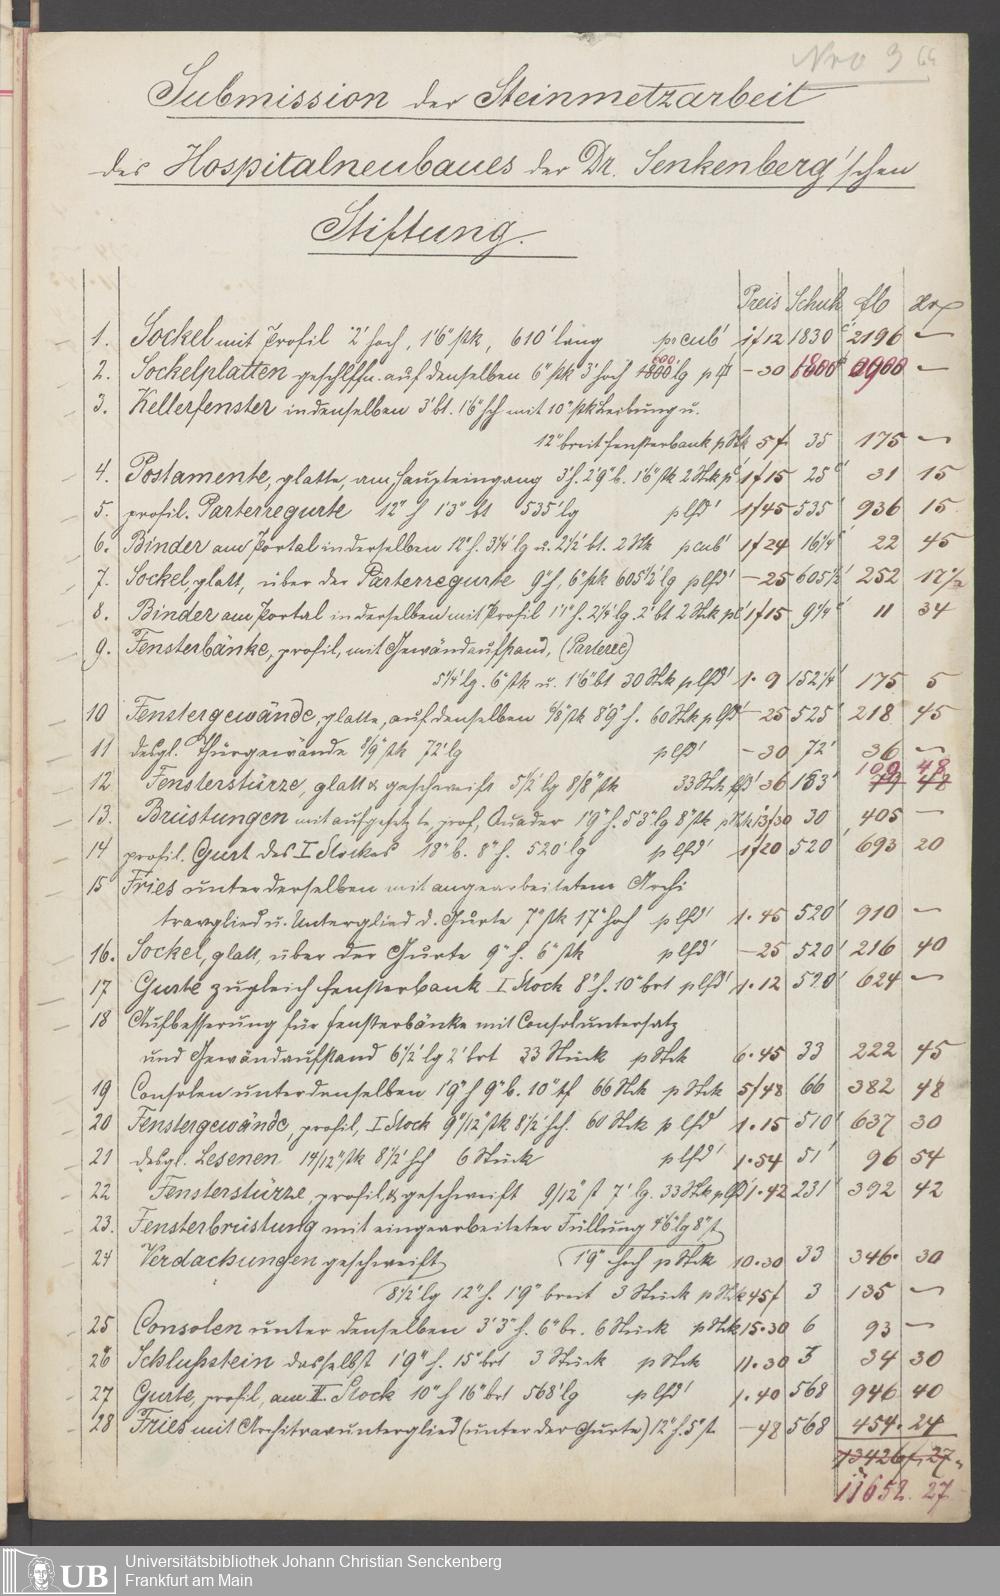 Nro 3 64
Submission der Steinmetzarbeit
des Hospitalneubaues der Dr. Senkenberg'schen
Stiftung.
Preis Schuh fl xr
1. Sockel mit Profil 2' hoch, 1'6" stk, 610' lang pr cub' 1f 12 1830 c' 2196 —
2. Sockelplatten geschlffn. auf denselben 6" stk 3' hoch 600' lg p □' — 30 1800 900 —
3. Kellerfenster in denselben 3' bt. 1'6" hch mit 10" stk Leibung u.
12" breit Fensterbank p Stk 5f 35 175 —
4. Postamente, glatte, am Haupteingang 3' h. 2'9" b. 1'6" stk 2 Stk p c' 1f 15 25 c' 31 15
5. profil. Parterregurte 12" h 1'3" bt 535' lg p lfd' 1f 45 535 936 15
6. Binder am Portal in derselben 12" h. 3 1/4' lg u. 2 1/2' bt. 2 Stk p cub' 1f 24 16 1/4 c' 22 45
7. Sockel, glatt, über der Parterregurte 9" h, 6" stk 605 1/2' lg p lfd' — 25 605 1/2' 252 17 1/2
8. Binder am Portal in derselben mit Profil 1'1" h. 2 1/4' lg. 2' bt 2 Stck p c' 1f 15 9 1/4 c' 11 34
9. Fensterbänke, profil, mit Gewändaufstand, (Parterre)
5 1/4' lg. 6" stk u. 1'6" bt 30 Stk p lfd' 1. 9 152 1/4' 175 5
10 Fenstergewände, glatte, auf denselben 6/8" stk 8'9" h. 60 Stk p lfd' — 25 525' 218 45
11 desgl. Thürgewände 8/9" stk 72' lg p lfd' — 30 72' 36 —
12 Fensterstürze, glatt & geschweift 5 1/2' lg 8/8" stk 33 Stk p lfd' 36 183' 109 48
13. Brüstungen mit aufgesetzte, prof, Quader 1'9" h. 5'3" lg 8" stk p Stk 13f 30 30 405 —
14 profil. Gurt des I Stockes 18" b. 8" h. 520' lg p lfd' 1f 20 520 693 20
15 Fries unter derselben mit angearbeitetem Archi
travglied u. Unterglied d. Gurte 7" stk 17" hoch p lfd' 1. 45 520' 910 —
16. Sockel, glatt, über der Gurte 9" h. 6" stk p lfd' — 25 520' 216 40
17 Gurte zugleich Fensterbank I Stock 8" h. 10" brt p lfd' 1. 12 520' 624 —
18 Aufbesserung für Fensterbänke mit Consoluntersatz
und Gewändaufstand 6 1/2' lg 2' brt 33 Stück p Stk 6. 45 33 222 45
19 Consolen unter denselben 1'9" h 9" b. 10" tf 66 Stk p Stck 5f 48 66 382 48
20 Fenstergewände, profil, I Stock 9"/12" stk 8 1/2' hch. 60 Stck p lfd' 1. 15 510' 637 30
21 desgl. Lesenen 14/12" stk 8 1/2' hch 6 Stück p lfd' 1. 54 51' 96 54
22 Fensterstürze, profil, & geschweift 9/12" st 7' lg. 33 Stk p lfd' 1. 42 231' 392 42
23. Fensterbrüstung mit eingearbeiteter Füllung 4'6" lg 8" st
1'9" hoch p Stck 10. 30 33 346. 30
24 Verdachungen geschweift
8 1/2' lg 12" h. 1'9" breit 3 Stück p Stk 45f 3 135 —
25 Consolen unter denselben 3'3" h. 6" br. 6 Stück p Stck 15. 30 6 93 —
26 Schlußstein dasselbst 1'9" h. 15" brt 3 Stück p Stck 11. 30 3 34 30
27 Gurte, profil, am II. Stock 10" h 16" brt 568' lg p lfd' 1. 40 568 946 40
28 Fries mit Architravunterglied (unter der Gurte) 12" h. 5" st — 48 568 454. 24
13426f. 27
11652. 27
UB
Universitätsbibliothek Johann Christian Senckenberg
Frankfurt am Main